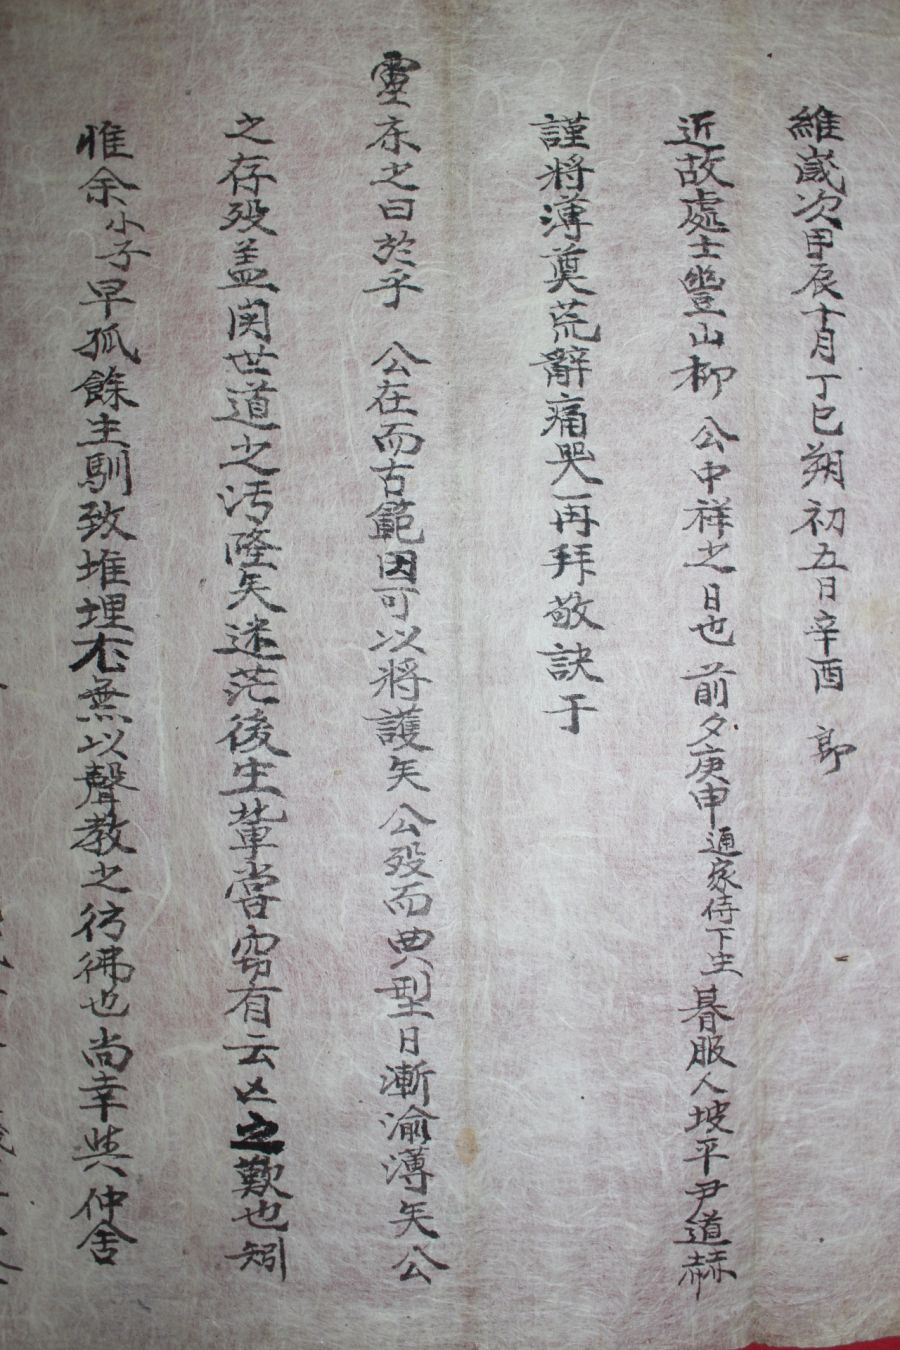 維歲次甲辰十月丁巳朔初五日辛酉 郭
近故處士豊山柳 公中祥之日也 前夕庚申通家侍下生朞服人坡平尹道赫
謹將薄奠荒辭痛哭再拜敬訣于
靈床之曰於乎 公在而古範因可以將護矣公歿而典型日漸渝薄矣公
之存歿盖関世道之汚隆矣迷茫後生輩嘗窃有云亡之歎也矧
惟余小子早孤餘生馴致堆埋無以聲教之彷彿也尚幸與仲舍